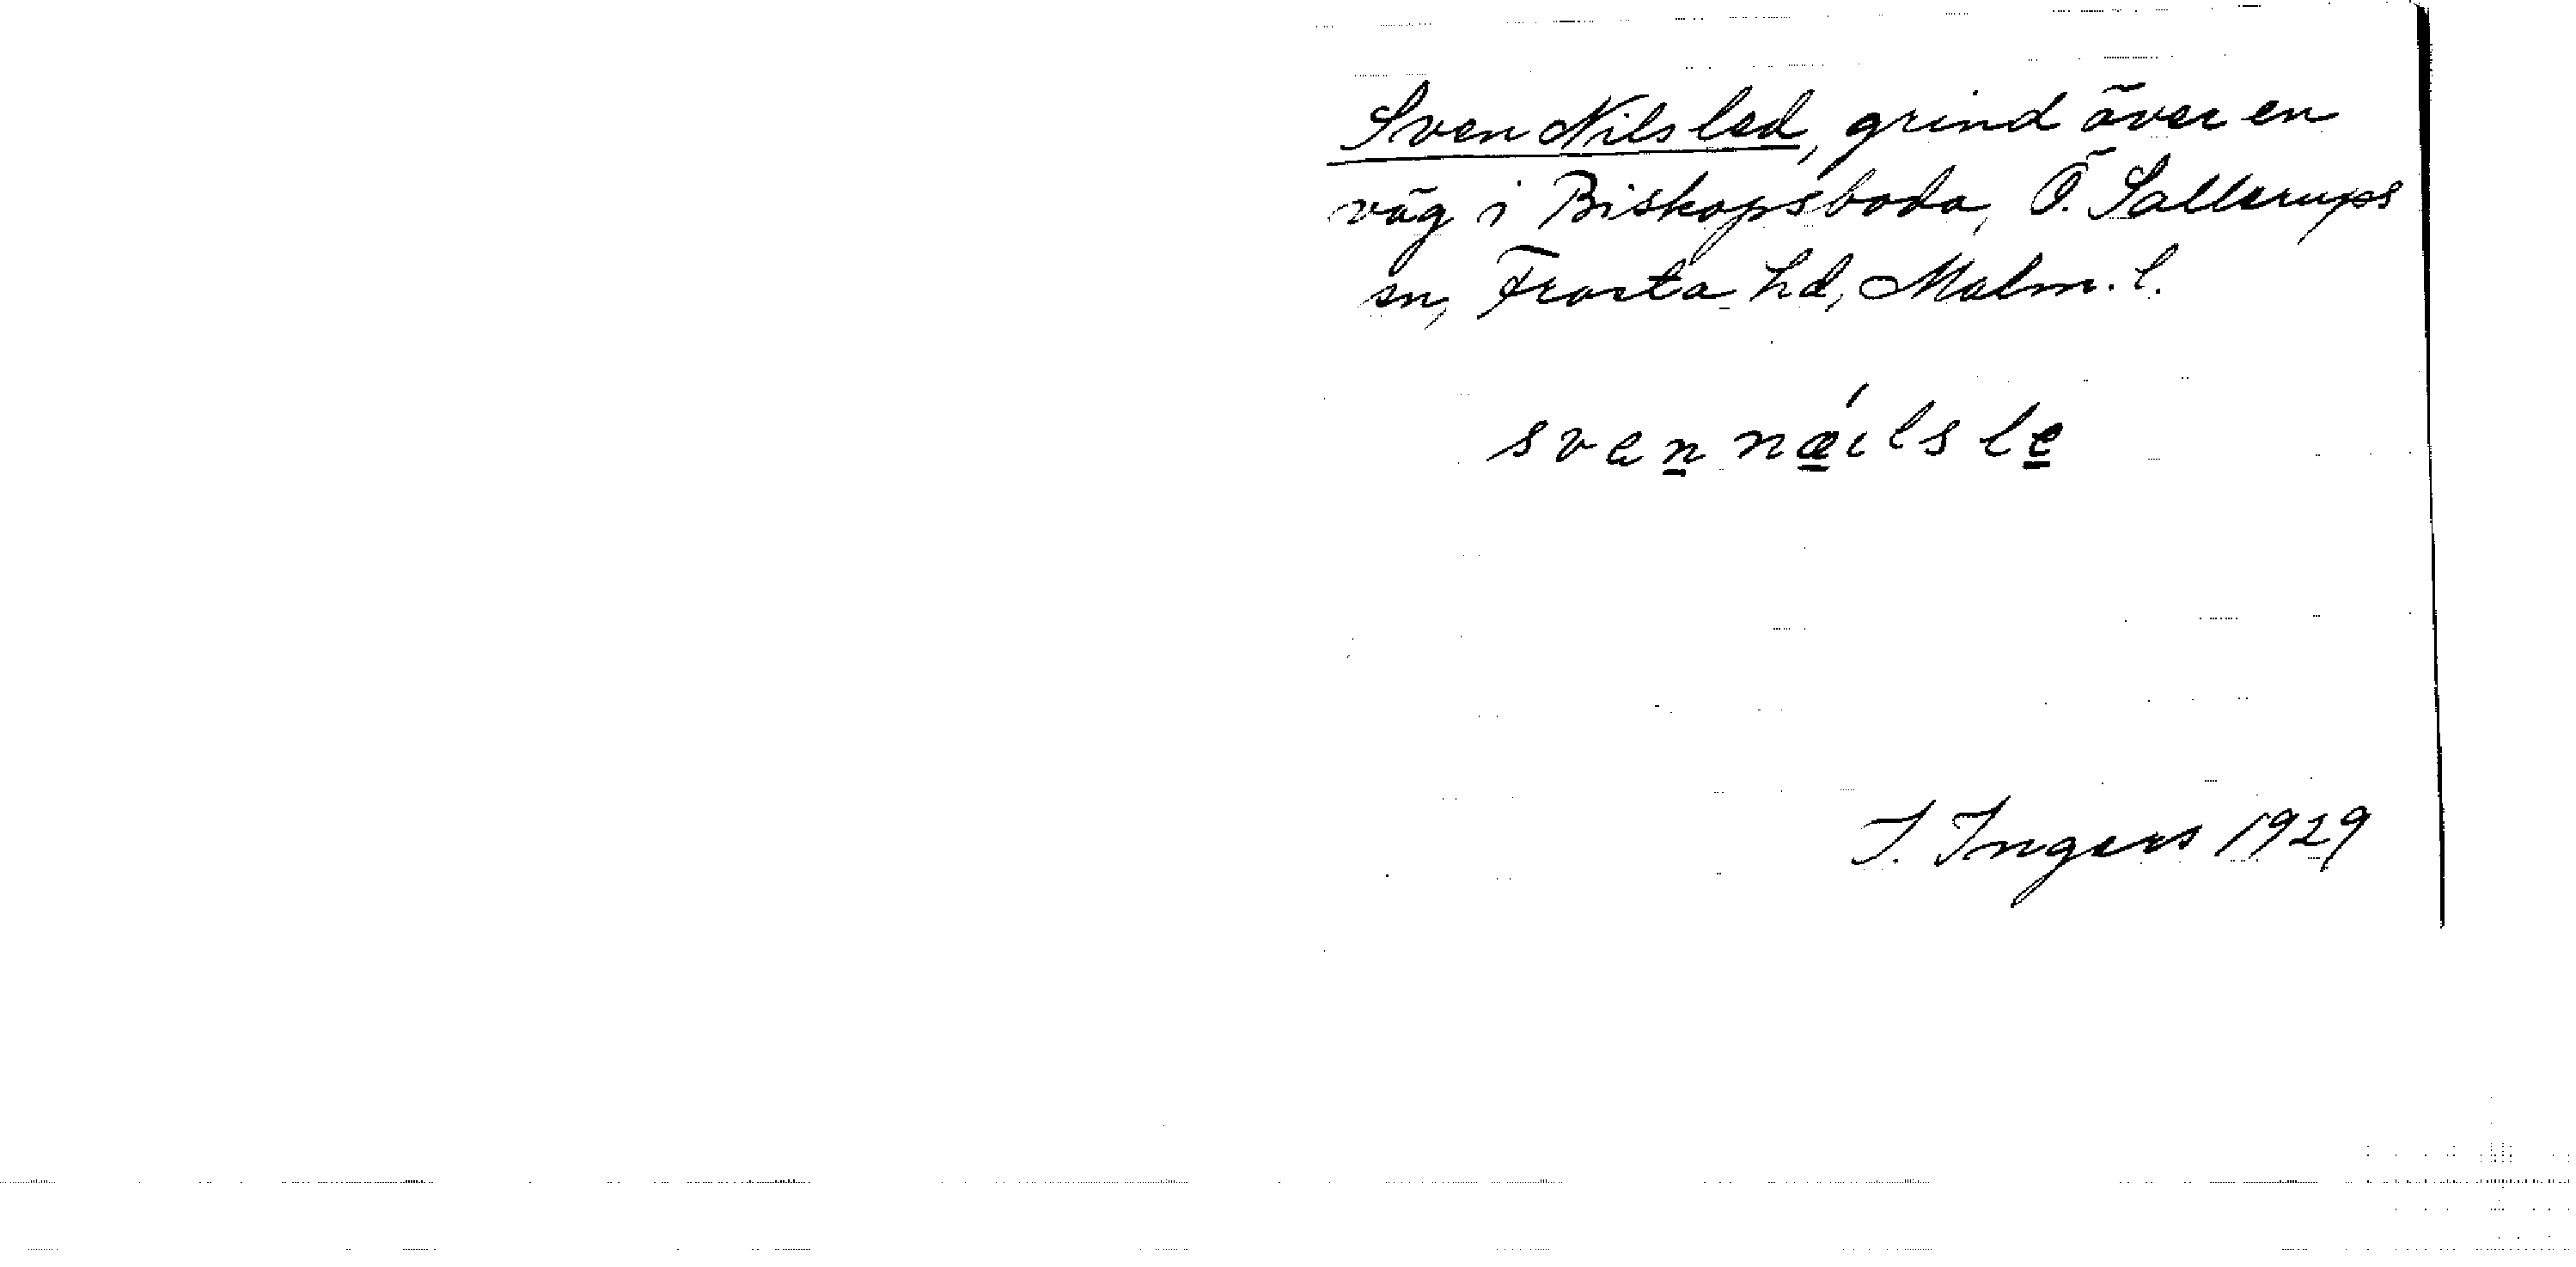 Sven Nils led, grind över en
väg i Biskopsboda, Ö. Sallerups
sn, Frosta hd, Malm. l.
sven næilsle
I. Ingers 1929